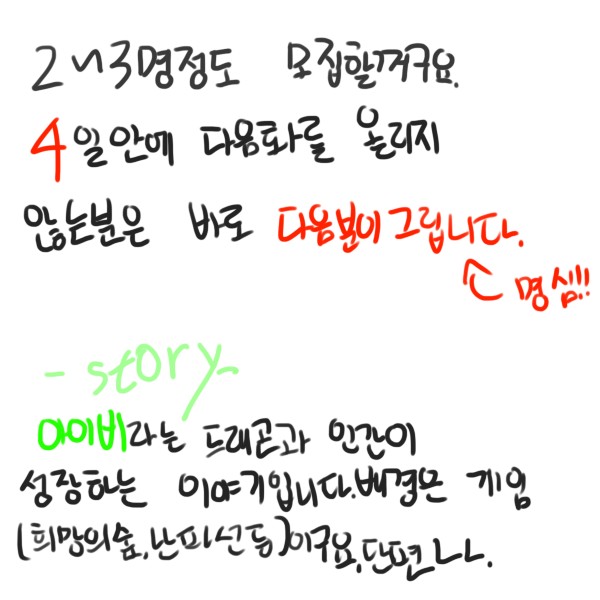 2~3명정도 모집할꺼구요.
4일안에 다음화를 올리지
않는분은 바로 다음분이그립니다.
명심!!
- story -
아이비라는 드래곤과 인간이
성장하는 이야기입니다.배경은 게임
(희망의숲,난파선등)이구요,단편ㄴㄴ.